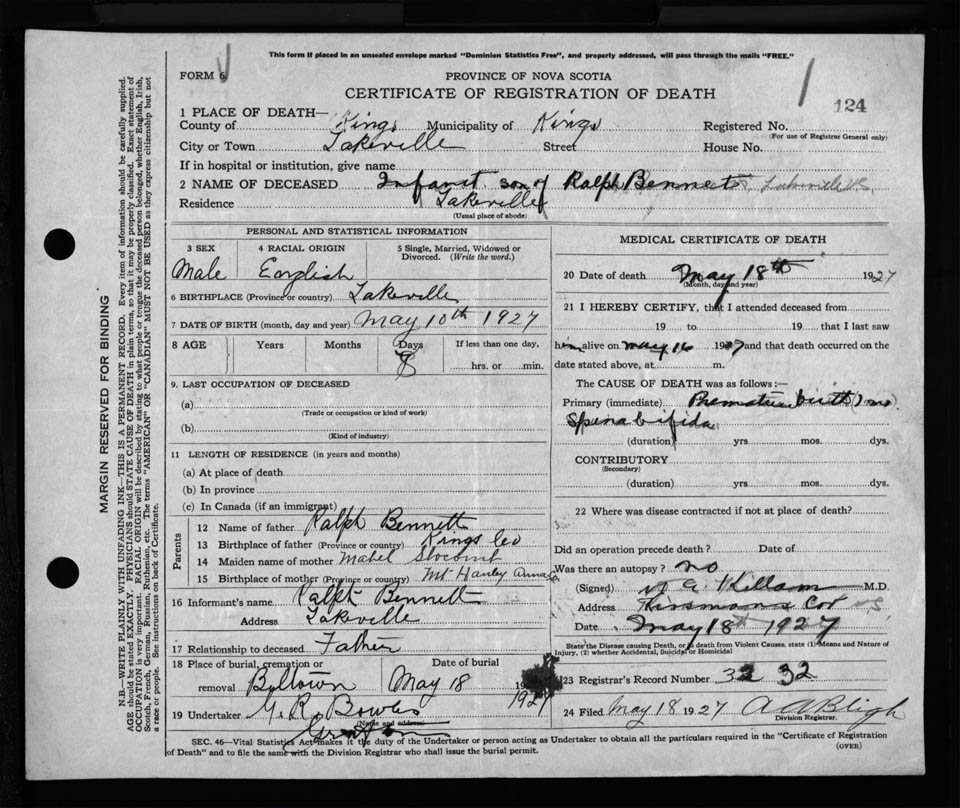 This form if placed in an unsealed envelope marked "Dominion Statistics Free", and properly addressed, will pass through the mails "FREE."
FORM 6
PROVINCE OF NOVA SCOTIA
CERTIFICATE OF REGISTRATION OF DEATH
124
1 PLACE OF DEATH—
County of Kings Municipality of Kings Registered No.
(For use of Registrar General only)
City or Town Lakeville Street House No.
If in hospital or institution, give name
2 NAME OF DECEASED Infant son of Ralph Bennett, Lakeville
Residence Lakeville
(Usual place of abode)
PERSONAL AND STATISTICAL INFORMATION
3 SEX 4 RACIAL ORIGIN 5 Single, Married, Widowed or Divorced. (Write the word.)
Male English
6 BIRTHPLACE (Province or country) Lakeville
7 DATE OF BIRTH (month, day and year) May 10th 1927
8 AGE Years Months Days If less than one day,
8 hrs. or min.
9. LAST OCCUPATION OF DECEASED
(a)
(Trade or occupation or kind of work)
(b)
(Kind of industry)
11 LENGTH OF RESIDENCE (in years and months)
(a) At place of death
(b) In province
(c) In Canada (if an immigrant)
Parents
12 Name of father Ralph Bennett
13 Birthplace of father (Province or country) Kings Co
14 Maiden name of mother Mabel Slocomb
15 Birthplace of mother (Province or country) Mt Hanley Annap
16 Informant's name Ralph Bennett
Address Lakeville
17 Relationship to deceased Father
18 Place of burial, cremation or removal Billtown
Date of burial May 18 1927
19 Undertaker G. R. Bowles
(Name and address)
MEDICAL CERTIFICATE OF DEATH
20 Date of death May 18th 1927
(Month, day and year)
21 I HEREBY CERTIFY, that I attended deceased from
19 to 19 that I last saw
him alive on May 16 1927 and that death occurred on the
date stated above, at m.
The CAUSE OF DEATH was as follows:—
Primary (immediate) Premature birth 1 mo
Spina bifida
(duration) yrs. mos. dys.
CONTRIBUTORY
(Secondary)
(duration) yrs. mos. dys.
22 Where was disease contracted if not at place of death?
Did an operation precede death? Date of
Was there an autopsy? no
(Signed) Killam M.D.
Address Kinsmans Cor NS
Date May 18th 1927
State the Disease causing Death, or in death from Violent Causes, state (1) Means and Nature of
Injury, (2) whether Accidental, Suicidal or Homicidal
23 Registrar's Record Number 32 32
24 Filed May 18 1927 A A Bligh
Division Registrar.
SEC. 46—Vital Statistics Act makes it the duty of the Undertaker or person acting as Undertaker to obtain all the particulars required in the "Certificate of Registration
of Death" and to file the same with the Division Registrar who shall issue the burial permit.
(OVER)
MARGIN RESERVED FOR BINDING
N.B.—WRITE PLAINLY WITH UNFADING INK—THIS IS A PERMANENT RECORD. Every item of information should be carefully supplied.
AGE should be stated EXACTLY. PHYSICIANS should STATE CAUSE OF DEATH in plain terms, so that it may be properly classified. Exact statement of
OCCUPATION is very important. RACIAL ORIGIN will be described by stating to what people or tongue the deceased person belonged, whether English, Irish,
Scotch, French, German, Russian, Ruthenian, etc. The terms "AMERICAN" OR "CANADIAN" MUST NOT BE USED as they express citizenship but not
a race or people. See instructions on back of Certificate.